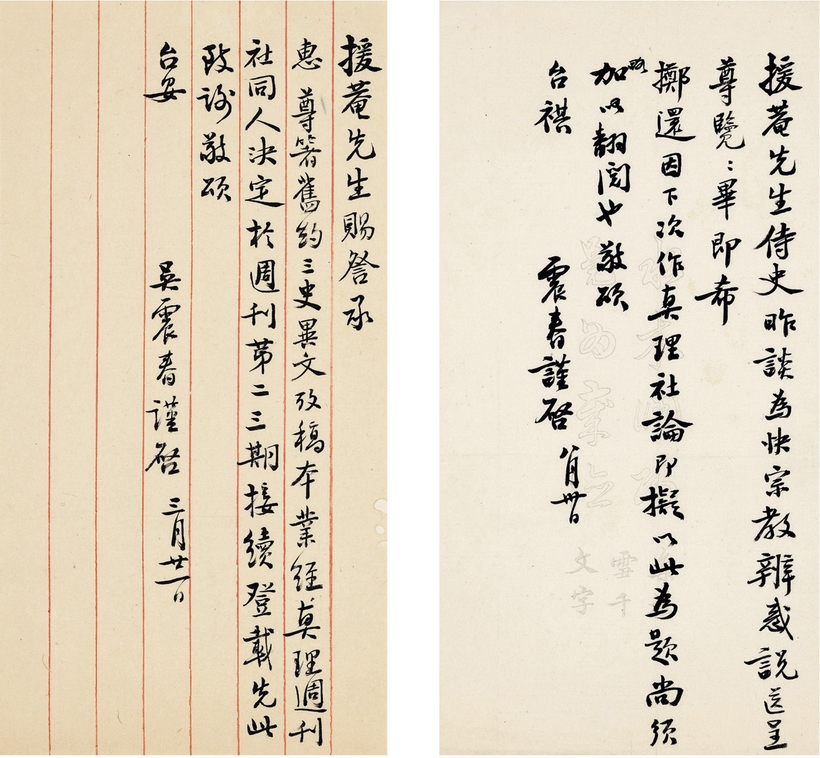 援菴先生侍史昨談為快宗教辨惑說送呈
尊覽：畢即希
擲還因下次作真理社論即擬以此為題尚須
略加以翻閱也敬頌
台祺
震春謹啓 八月卅日
援菴先生賜詧承
惠尊箸舊約三史異文攷稿本業經真理週刊
社同人決定於週刊第二三期接續登載先此
致謝敬頌
台安
吳震春謹啓 三月廿一日
文字